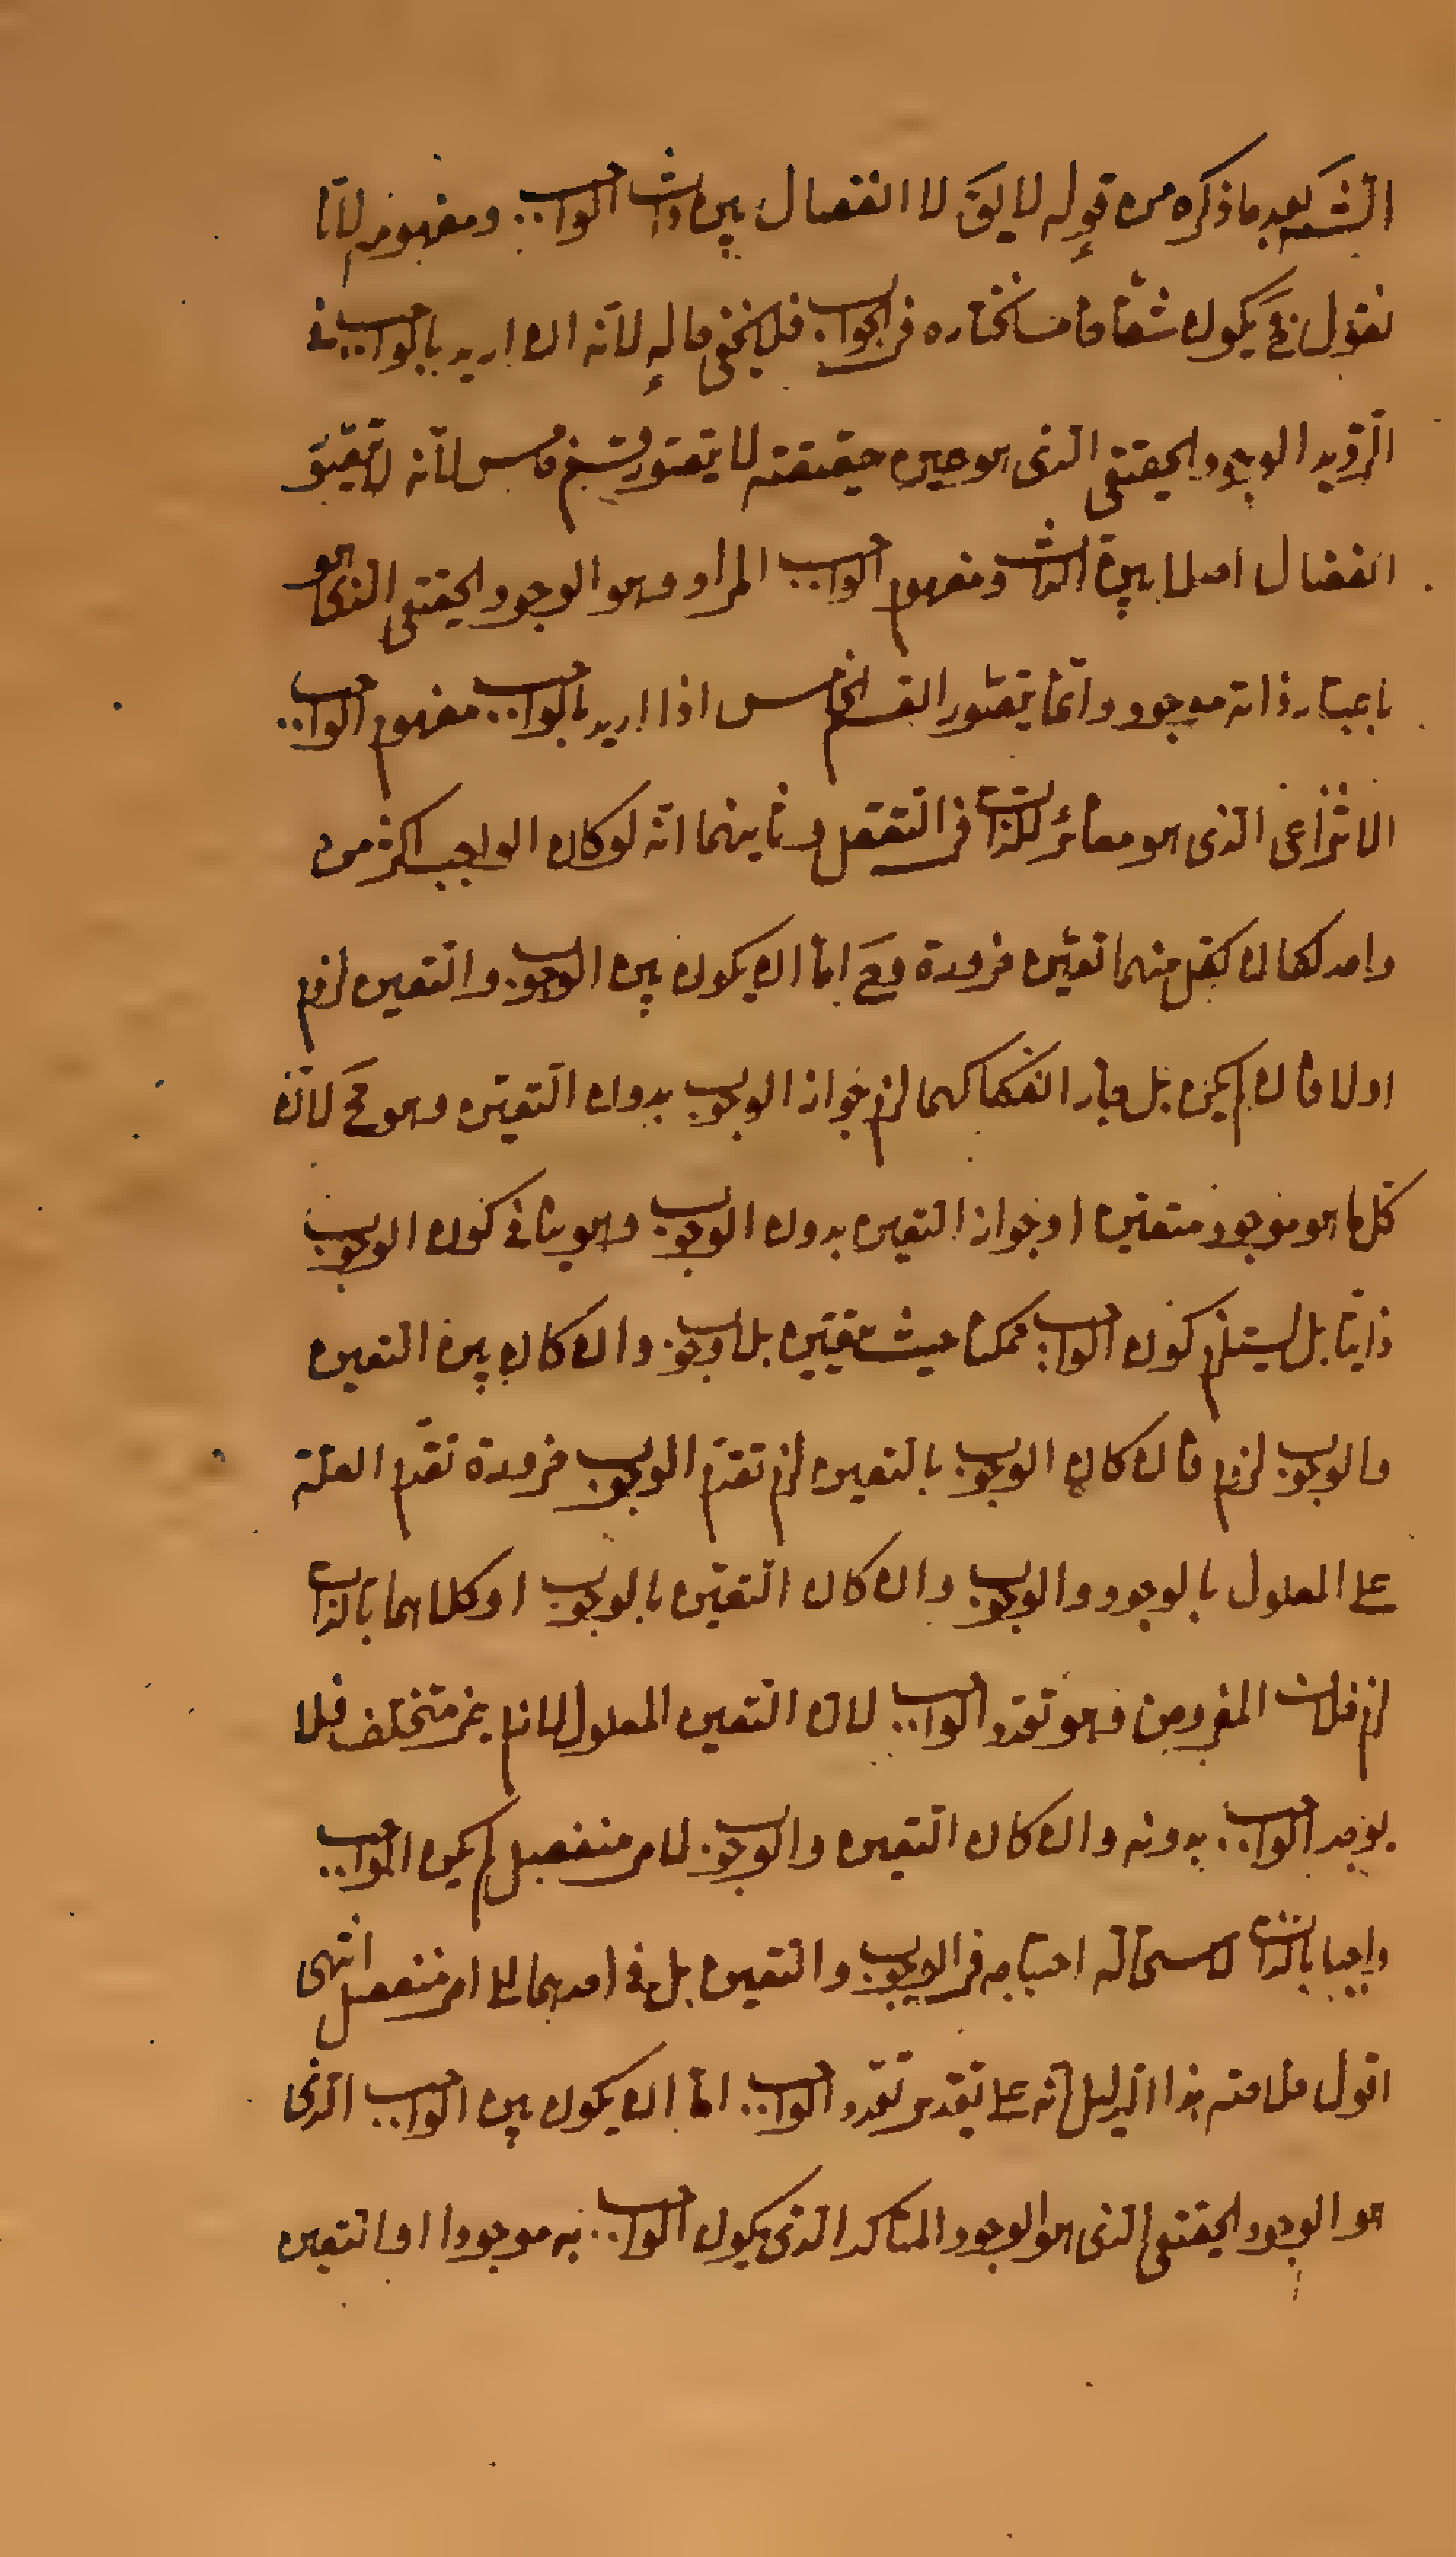 الشـ بعد ما ذكره من قوله لا يق لا انفصال بين ذات الواجب ومفهومه لانا
نقول فح يكون شقا خامسا نختاره فى الجواب فلا يخفى ما فيه لانه ان اريد بالواجب فى
الترديد الوجود الحقيقى الذى هو عين حقيقته لا يتصور قسم خامس لانه لا يتحقق
انفصال اصلا بين الذات ومفهوم الواجب المراد وهو الوجود الحقيقى الذى هو
باعتبار ذاته موجود وانما يتصور القسم الخامس اذا اريد بالواجب مفهوم الواجب
الانتزاعى الذى هو مغائر للذات فى التعقل وثانيهما انه لو كان الواجب اكثر من
واحد لكان لكل منهما تعين ضرورة وح اما ان يكون بين الوجوب والتعين لزوم
او لا فان لم يكن بل جاز انفكاكهما لزم جواز الوجوب بدون التعين وهو مح لان
كل ما هو موجود متعين او جواز التعين بدون الوجوب وهو ينافى كون الوجوب
ذاتيا بل يستلزم كون الواجب ممكنا حيث تعين بلا وجوب وان كان بين التعين
والوجوب لزوم فان كان الوجوب بالتعين لزم تقدم الوجوب ضرورة تقدم العلة
على المعلول بالوجود والوجوب وان كان التعين بالوجوب او كلاهما بالذات
لزم خلاف المفروض وهو تعدد الواجب لان التعين المعلول لازم غير متخلف فلا
يوجد الواجب بدونه وان كان التعين والوجوب لامر منفصل لم يكن الواجب
واجبا بالذات لاستحالة احتياجه فى الوجوب والتعين بل فى احدهما الى امر منفصل انتهى
اقول خلاصة هذا الدليل انه على تقدير تعدد الواجب اما ان يكون بين الواجب الذى
هو الوجود الحقيقى الذى هو الوجود المتاكد الذى يكون الواجب به موجودا او التعين